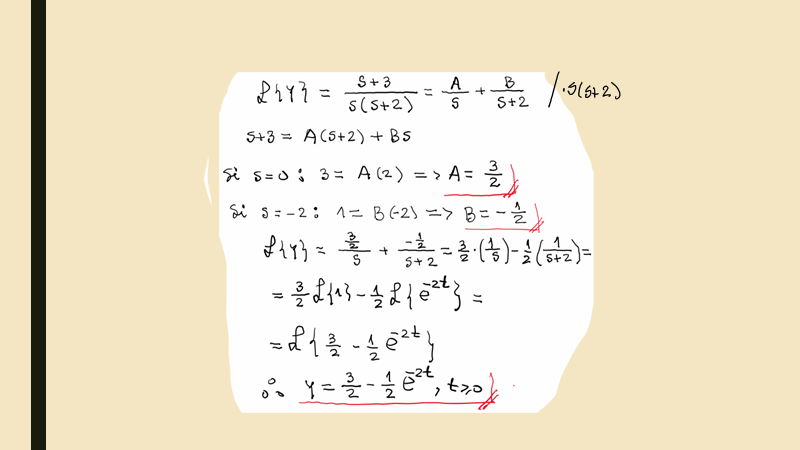 ℒ{Y} = s+3/s(s+2) = A/s + B/s+2 /·s(s+2)
s+3 = A(s+2) + Bs
Si s=0 : 3 = A(2) => A = 3/2
Si s=-2 : 1 = B(-2) => B = -1/2
ℒ{Y} = 3/2/s + -1/2/s+2 = 3/2·(1/s) - 1/2(1/s+2) =
= 3/2 ℒ{1} - 1/2 ℒ{e^-2t} =
= ℒ{3/2 - 1/2 e^-2t}
∴ Y = 3/2 - 1/2 e^-2t, t≥0